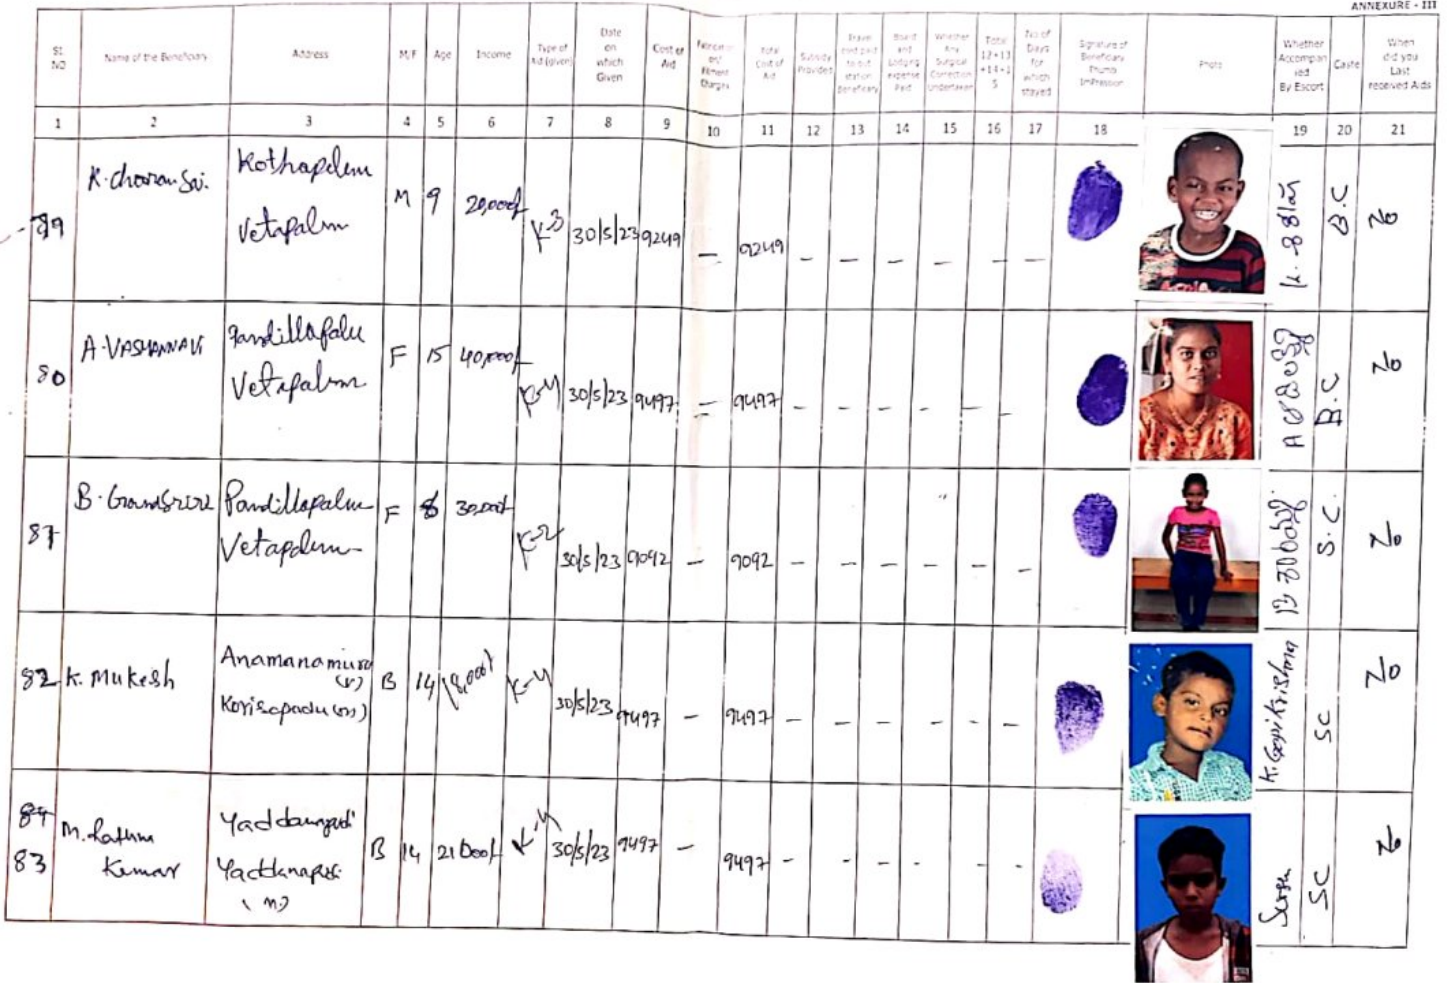 ANNEXURE - III
Sl. NO | Name of the Beneficiary | Address | M/F | Age | Income | Type of Aid (given) | Date on which Given | Cost of Aid | Fabrication/ Fitment Charges | Total Cost of Aid | Subsidy Provided | Travel cost paid to out station beneficiary | Board and Lodging expense Paid | Whether Any Surgical Correction Undertaken | Total 12+13+14+15 | No of Days for which stayed | Signature of Beneficiary Thumb Impression | Photo | Whether Accompanied By Escort | Caste | When did you Last received Aids
1 2 3 4 5 6 7 8 9 10 11 12 13 14 15 16 17 18 19 20 21
K. Sai. Kothapalem
79 Vetapalem M 9 20,000/- K-3 30/5/23 9249 — 9249 — — — — — — B.C No
A. VASHANNAVI Pandillapalli
80 Vetapalem F 15 40,000/- K-4 30/5/23 9497 — 9497 — — — — — — B.C No
B. Pandillapalem
81 Vetapalem F 8 30,000/- K-2 30/5/23 9092 — 9092 — — — — — — S.C. No
82 K. Mukesh Anamanamuru (v)
Korisapadu (m) B 14 18,000/- K-4 30/5/23 9497 — 9497 — — — — — — K. Gopi Krishna SC No
84
83 M. Kumar Yaddanapudi
Yaddanapudi
(m) B 14 21000/- K-4 30/5/23 9497 — 9497 - - - - - - SC No